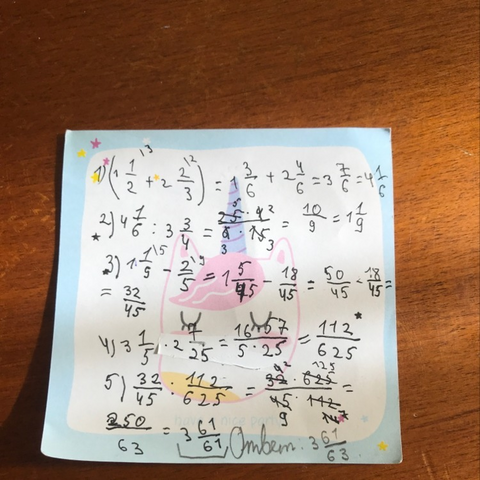 1) (1 1/2 \3 + 2 2/3 \2) = 1 3/6 + 2 4/6 = 3 7/6 = 4 1/6
2) 4 1/6 : 3 3/4 = 25 · 4 2 / 6 · 15 3 = 10/9 = 1 1/9
3) 1 1/9 \5 - 2/5 \9 = 1 5/45 - 18/45 = 50/45 - 18/45 =
= 32/45
4) 3 1/5 · 2 7/25 = 16 · 57 / 5 · 25 = 112/625
5) 32/45 · 112/625 = 32 2 · 625 125 / 45 9 · 112 =
250/63 = 3 61/61 Ответ: 3 61/63